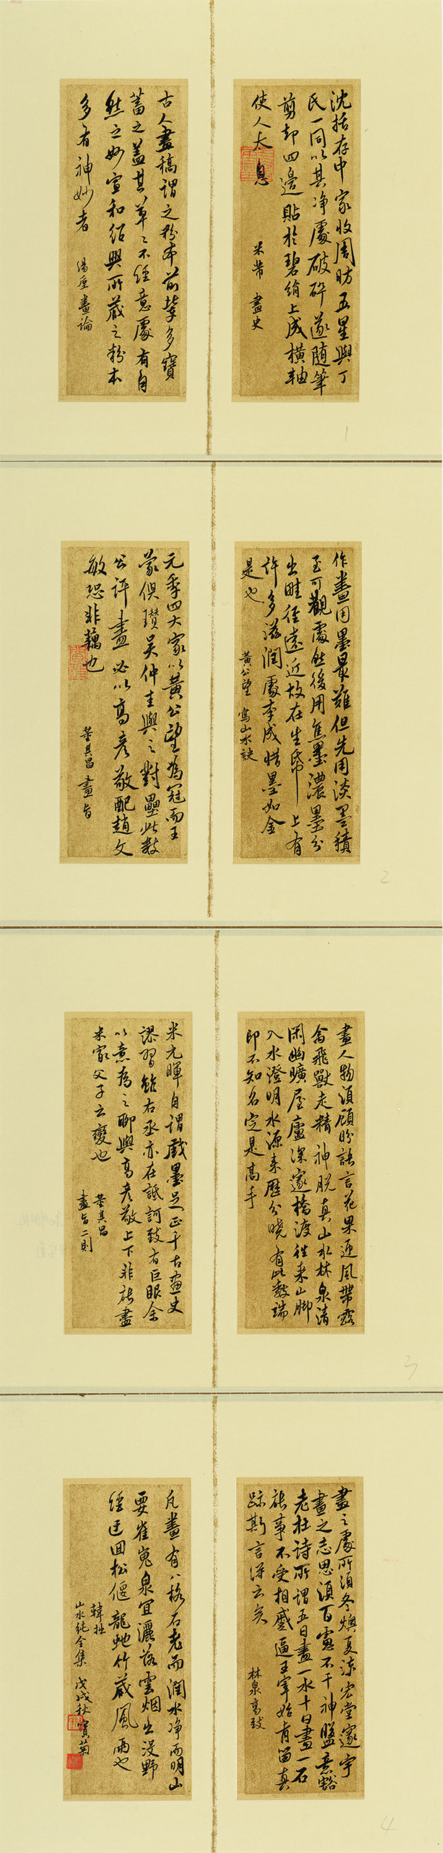 沈括存中家收周昉五星與丁
氏一同以其净處破碎遂随筆
剪却四邊貼於碧绢上成橫軸
使人太息
米芾 畫史
古人畫稿謂之粉本前輩多寶
蓄之蓋其草草不經意處有自
然之妙宣和紹興所藏之粉本
多有神妙者
湯垕畫論
1
作畫用墨最難但先用淡墨積
至可觀處然後用焦墨濃墨分
出畦徑遠近故在生帋上有
許多滋潤處李成惜墨如金
是也
黃公望 寫山水訣
元季四大家以黃公望為冠而王
蒙倪瓚吴仲圭與之對壘此数
公評畫必以高彥敬配趙文
敏恐非耦也
董其昌 畫旨
2
畫人物須顧盼語言花果迎風帶露
禽飛獸走精神脱真山水林泉清
閑幽曠屋廬深邃橋渡往来山脚
入水澄明水源来歷分曉有此数端
即不知名定是高手
米元暉自謂戲墨足正千古畫史
謬習雖右丞亦在詆訶致有巨眼余
以意為之聊與高彥敬上下非能盡
米家父子之變也
董其昌
畫旨二則
3
畫之處所須冬燠夏凉宏堂邃宇
畫之志思須百慮不干神盬意豁
老杜詩所謂五日畫一水十日畫一石
能事不受相蹙逼王宰始肯留真
跡斯言得之矣
林泉高致
凡畫有八格石老而潤水净而明山
要崔嵬泉宜灑落雲烟出没野
徑迂回松偃龍虵竹藏風雨也
韓拙
山水純全集 戊戌秋寶菊
4